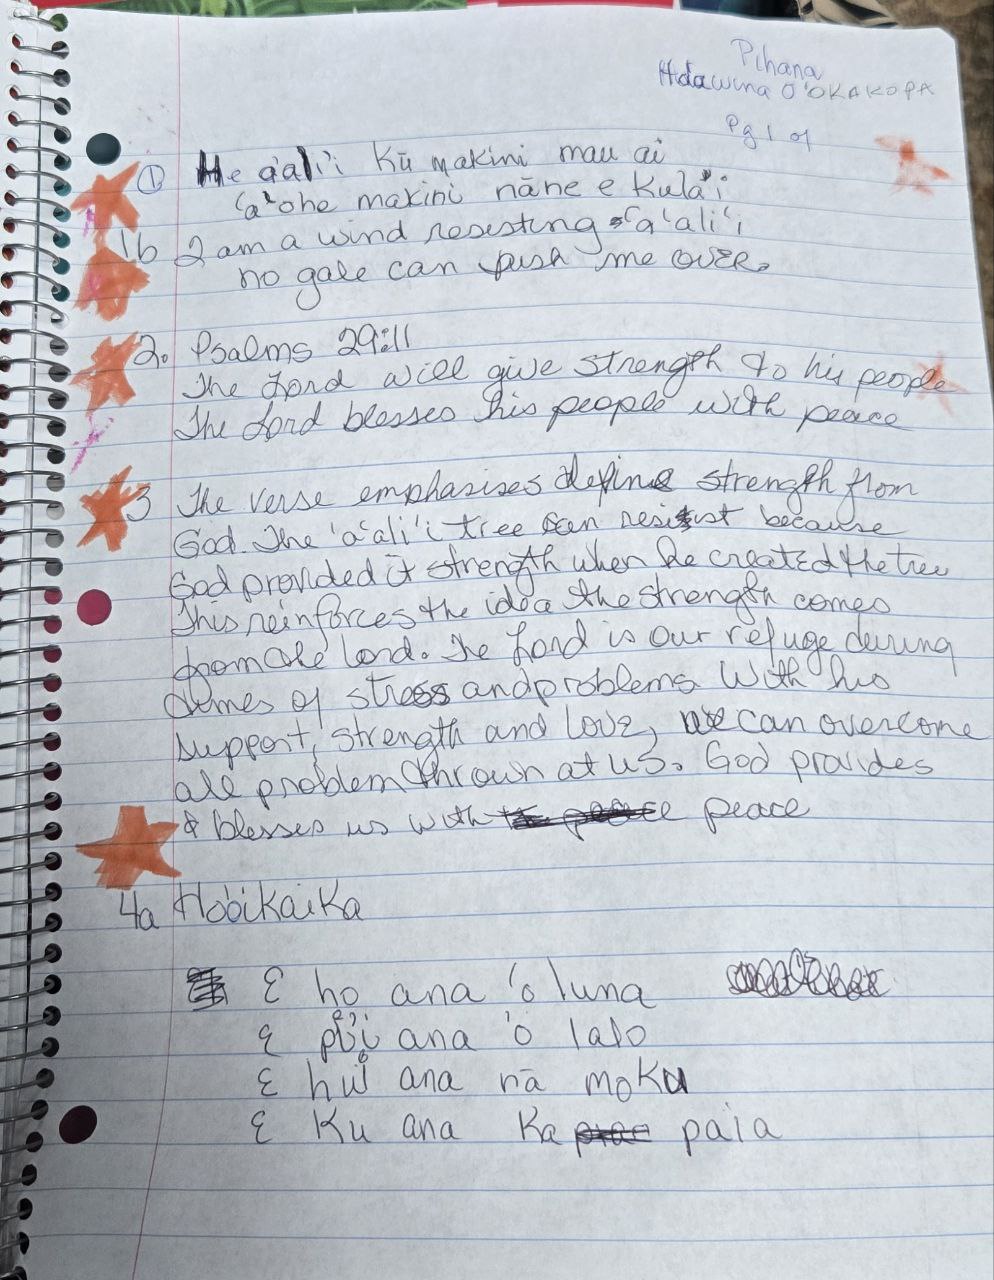 Pihana
Hdawina O'OKAKOPA
Pg 1 of
① He a'ali'i Kū makini mau ai
'a'ohe makini nāne e Kula'i
1b I am a wind resesting 'a'ali'i
no gale can push me over.
2. Psalms 29:11
The Lord will give strength to his people
The Lord blesses his people with peace
3 The verse emphasises define strength from
God. The 'a'ali'i tree can resist because
God provided it strength when he created the tree
This reinforces the idea the strength comes
from the lord. The Lord is our refuge during
times of stress and problems With his
support, strength and love, we can overcome
all problem thrown at us. God provides
& blesses us with peace
4a Ho'oikaika
E ho ana 'o luna
E pi'i ana 'o lalo
E hui ana nā moku
E Ku ana Ka paia